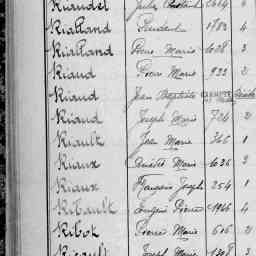 Riaudel Julie 2614 4
Rialland Président 1783 4
Rialland Pierre Marie 4028 3
Riaud Pierre Marie 922 2
Riaud Jean Baptiste
Riaud Joseph Marie 724 2
Riault Jean Marie 366 1
Riaux Marie 4026 3
Riaux François Joseph 254 1
Ribault Eugène Pierre 1966 4
Ribot Pierre Marie 616 2
Ricault Joseph Marie 1308 3